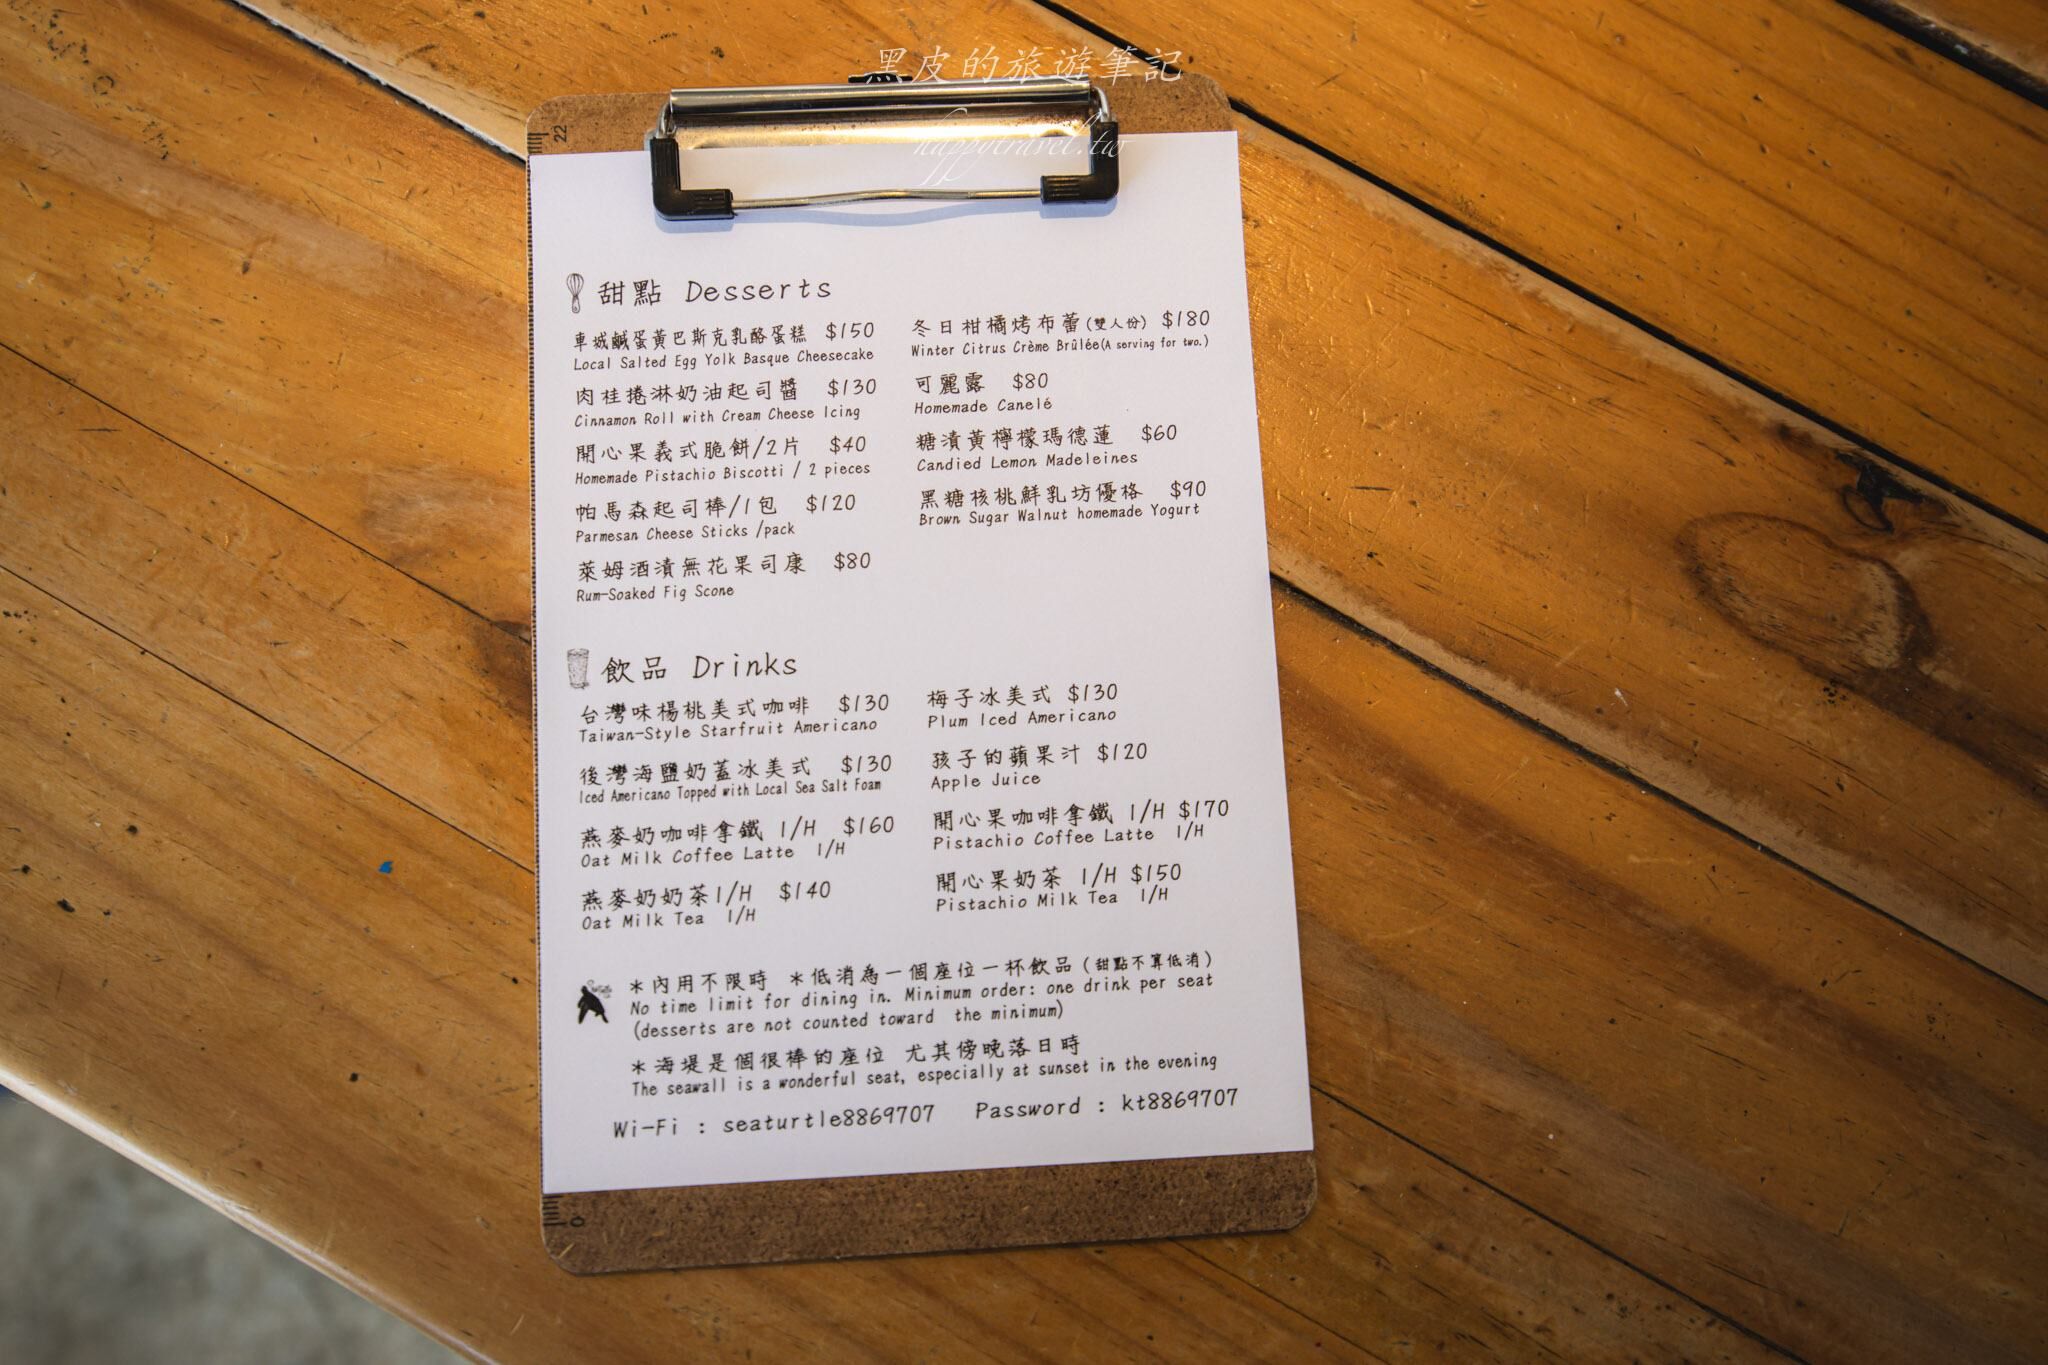 黑皮的旅遊筆記
happytravel.tw
22
甜點 Desserts
車城鹹蛋黃巴斯克乳酪蛋糕 $150
Local Salted Egg Yolk Basque Cheesecake
肉桂捲淋奶油起司醬 $130
Cinnamon Roll with Cream Cheese Icing
開心果義式脆餅/2片 $40
Homemade Pistachio Biscotti / 2 pieces
帕馬森起司棒/1包 $120
Parmesan Cheese Sticks /pack
萊姆酒漬無花果司康 $80
Rum-Soaked Fig Scone
冬日柑橘烤布蕾(雙人份) $180
Winter Citrus Crème Brûlée(A serving for two.)
可麗露 $80
Homemade Canelé
糖漬黃檸檬瑪德蓮 $60
Candied Lemon Madeleines
黑糖核桃鮮乳坊優格 $90
Brown Sugar Walnut homemade Yogurt
飲品 Drinks
台灣味楊桃美式咖啡 $130
Taiwan-Style Starfruit Americano
後灣海鹽奶蓋冰美式 $130
Iced Americano Topped with Local Sea Salt Foam
燕麥奶咖啡拿鐵 I/H $160
Oat Milk Coffee Latte I/H
燕麥奶奶茶I/H $140
Oat Milk Tea I/H
梅子冰美式 $130
Plum Iced Americano
孩子的蘋果汁 $120
Apple Juice
開心果咖啡拿鐵 I/H $170
Pistachio Coffee Latte I/H
開心果奶茶 I/H $150
Pistachio Milk Tea I/H
*內用不限時 *低消為一個座位一杯飲品(甜點不算低消)
No time limit for dining in. Minimum order: one drink per seat
(desserts are not counted toward the minimum)
*海堤是個很棒的座位 尤其傍晚落日時
The seawall is a wonderful seat, especially at sunset in the evening
Wi-Fi : seaturtle8869707 Password : kt8869707
0